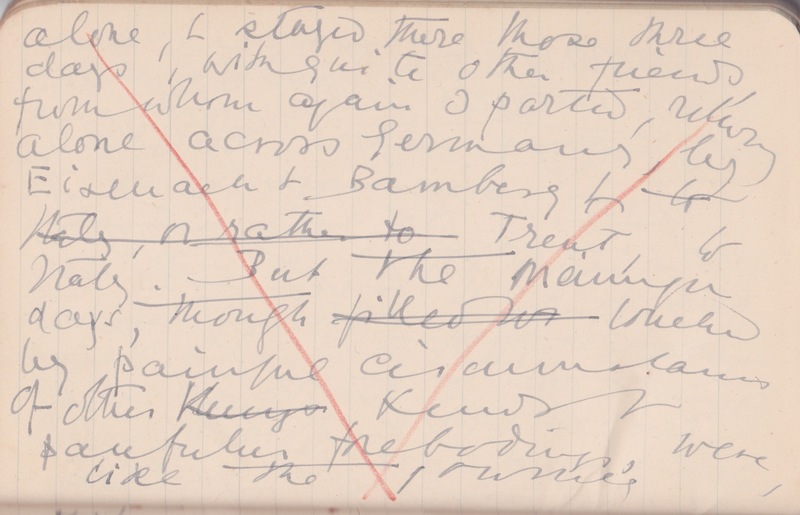 alone, & stayed there those three
days, with quite other friends,
from whom again I parted,
alone across Germany, by
Eisenach & Bamberg to
Italy, or rather to Trent &
Italy. But the
days, though filled
by painful circumstances
of other kinds &
painfuller forebodings, were,
like the